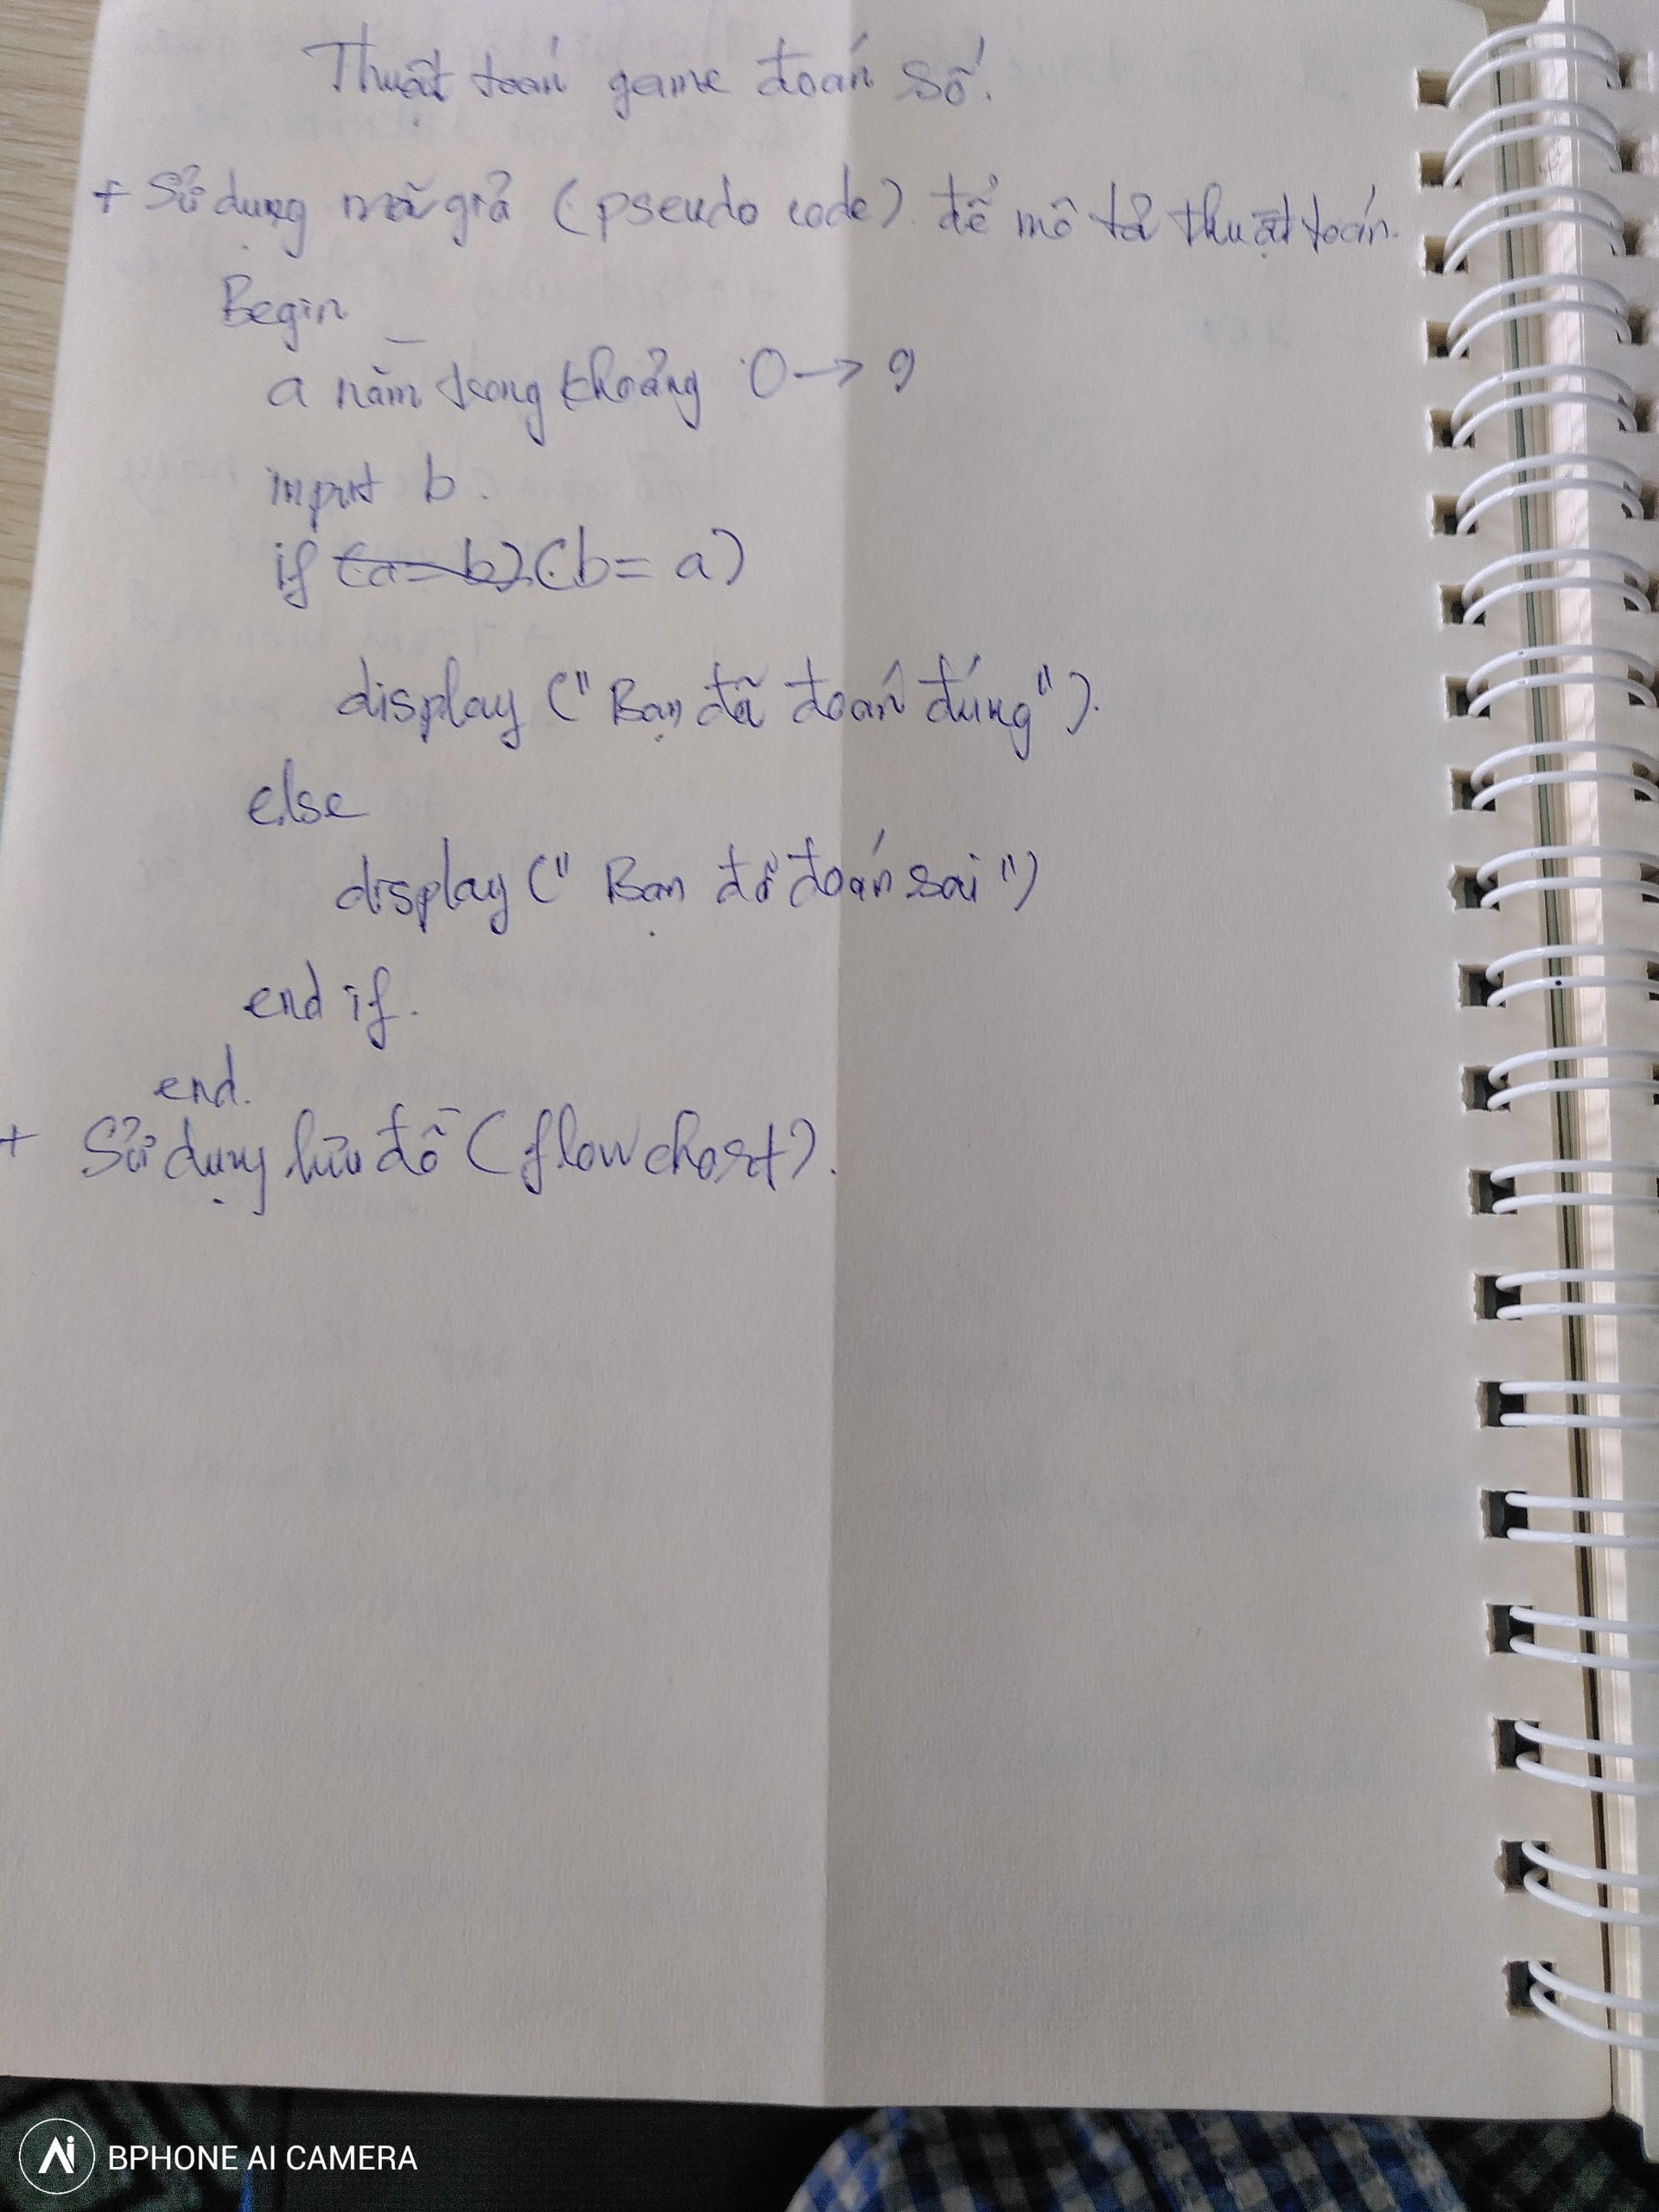 Thuật toán game đoán số.
+ Sử dụng mã giả (pseudo code). để mô tả thuật toán.
Begin
a nằm trong khoảng 0 → 9
input b.
if (a = b) (b = a)
display ("Bạn đã đoán đúng").
else
display ("Bạn đã đoán sai")
end if.
end.
+ Sử dụng lưu đồ (flowchart).
Ai BPHONE AI CAMERA